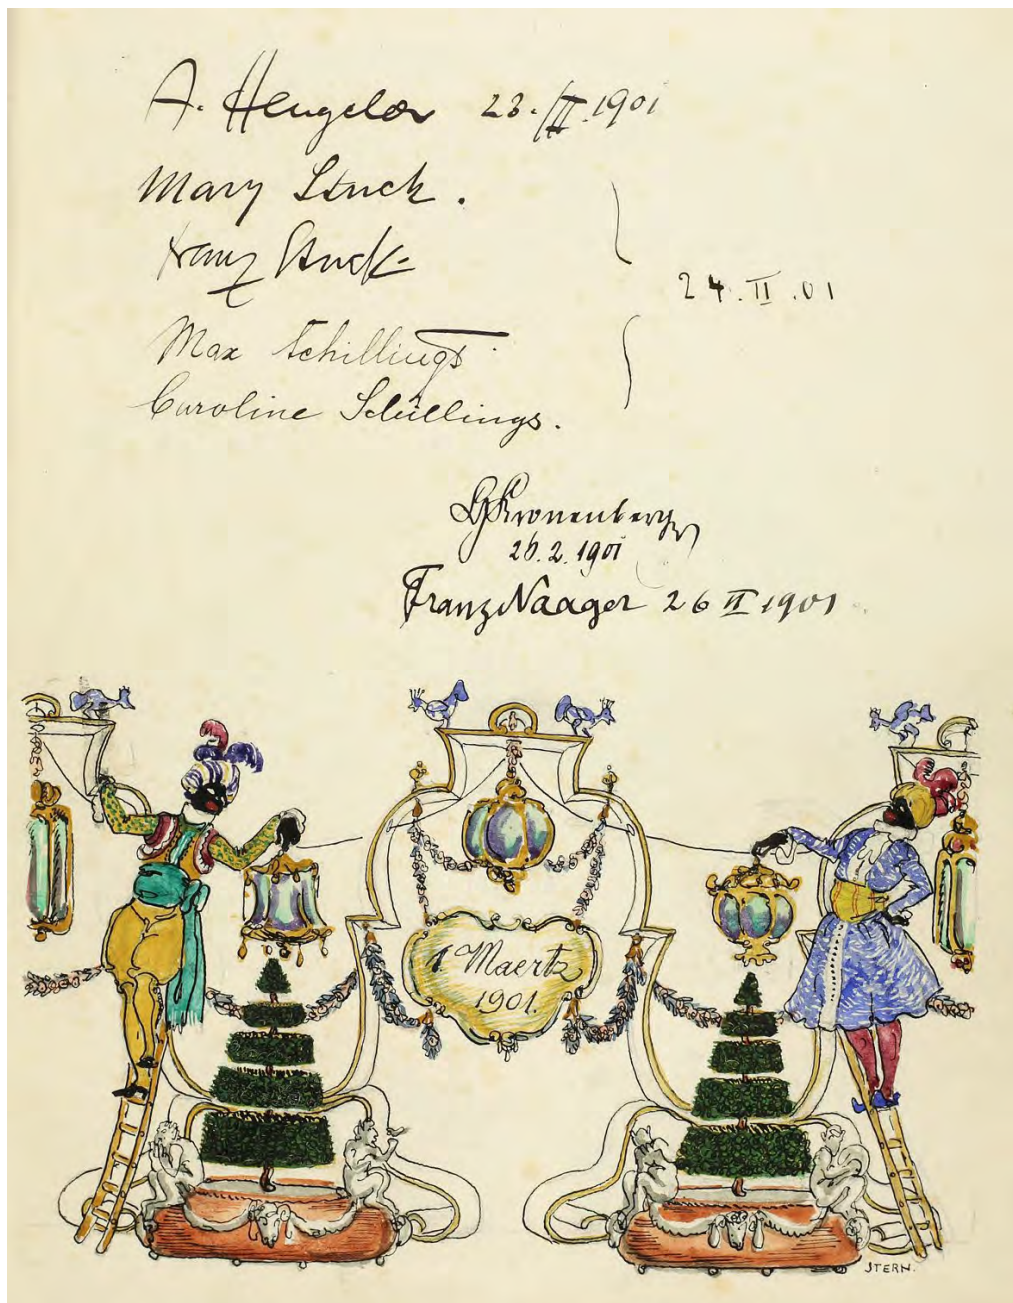 A. Hengeler 23./II.1901
Mary Stuck.
Franz Stuck
24.II.01
Max Schillings
Caroline Schillings.
Kronenberg
26.2.1901
Franz Naager 26 II 1901
1 Maertz
1901.
STERN.